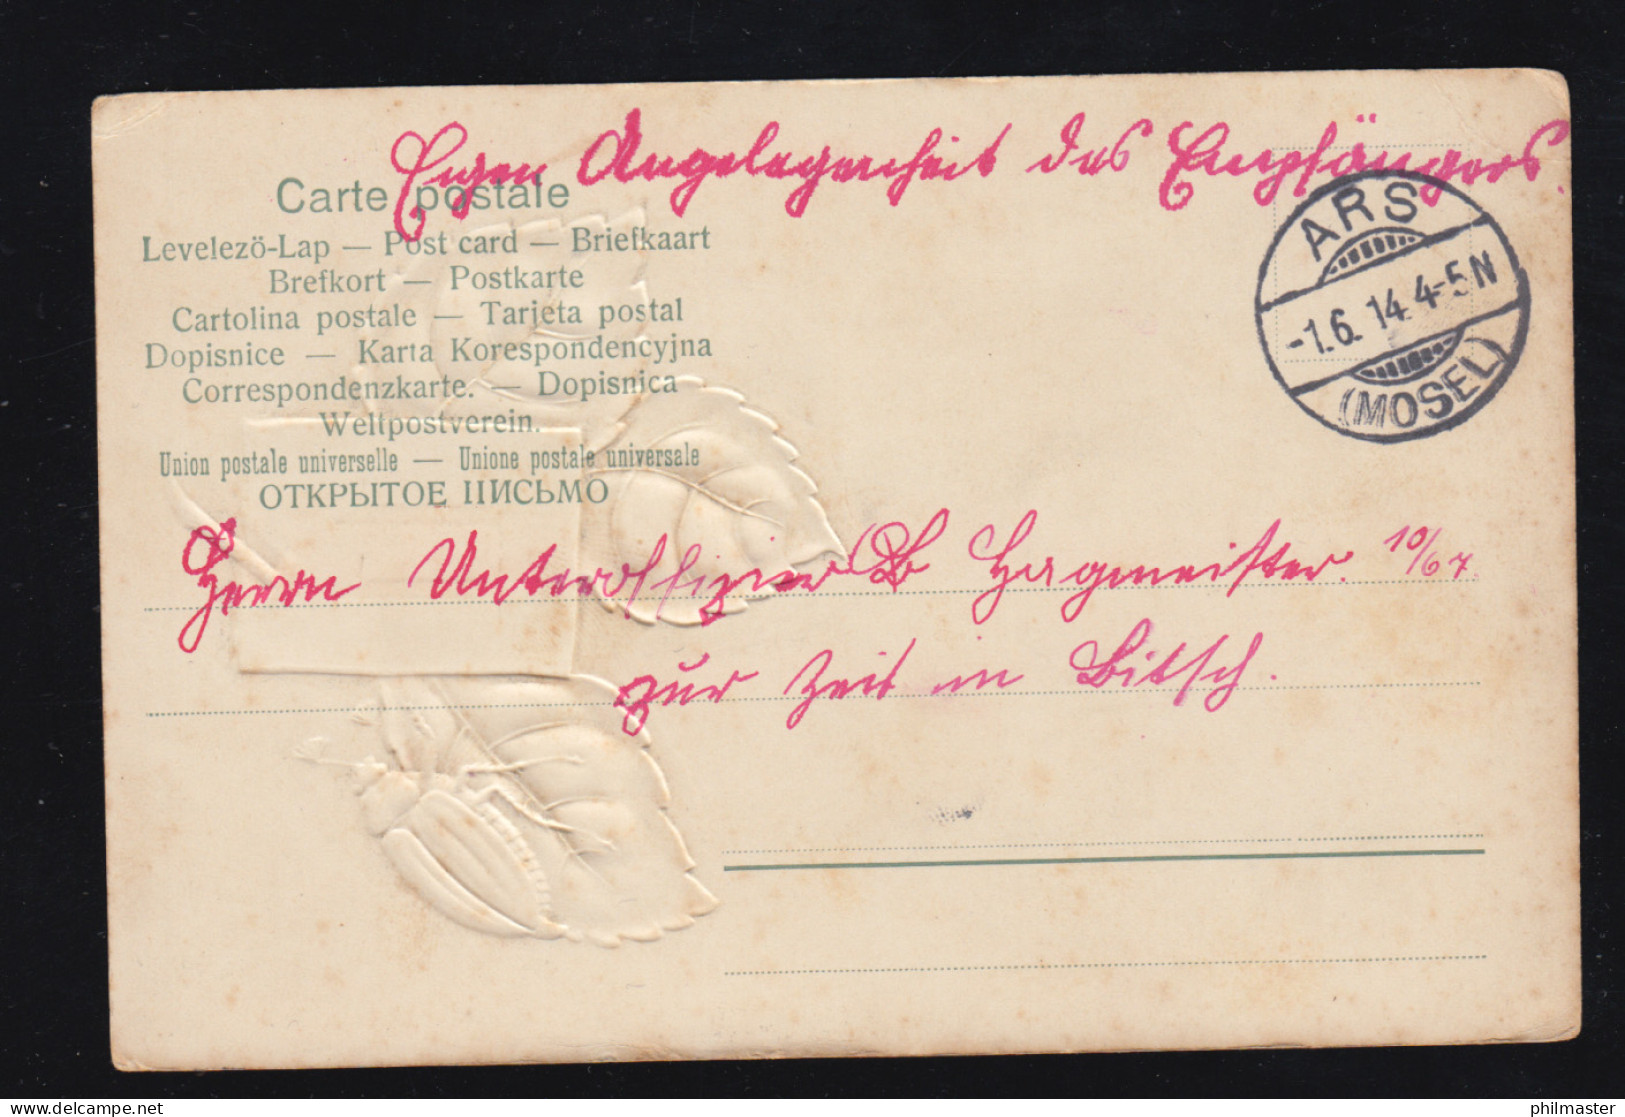 Eigen Angelegenheit des Empfängers.
Carte postale
Levelezö-Lap — Post card — Briefkaart
Brefkort — Postkarte
Cartolina postale — Tarjeta postal
Dopisnice — Karta Korespondencyjna
Correspondenzkarte. — Dopisnica
Weltpostverein.
Union postale universelle — Unione postale universale
ОТКРЫТОЕ ПИСЬМО
ARS
-1.6.14.4-5N
(MOSEL)
Herrn Unteroffizier B Hagmeister. 10/67.
zur Zeit in Bitsch.
philmaster